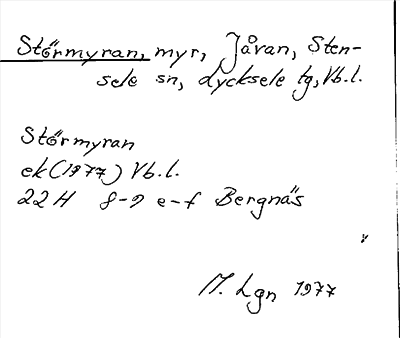 Störmyran, myr, Jåvan, Sten-
sele sn, Lycksele tg, Vb.l.
Störmyran
ek (1977) Vb.l.
22H 8-9 e-f Bergnäs
M. Lgn 1977